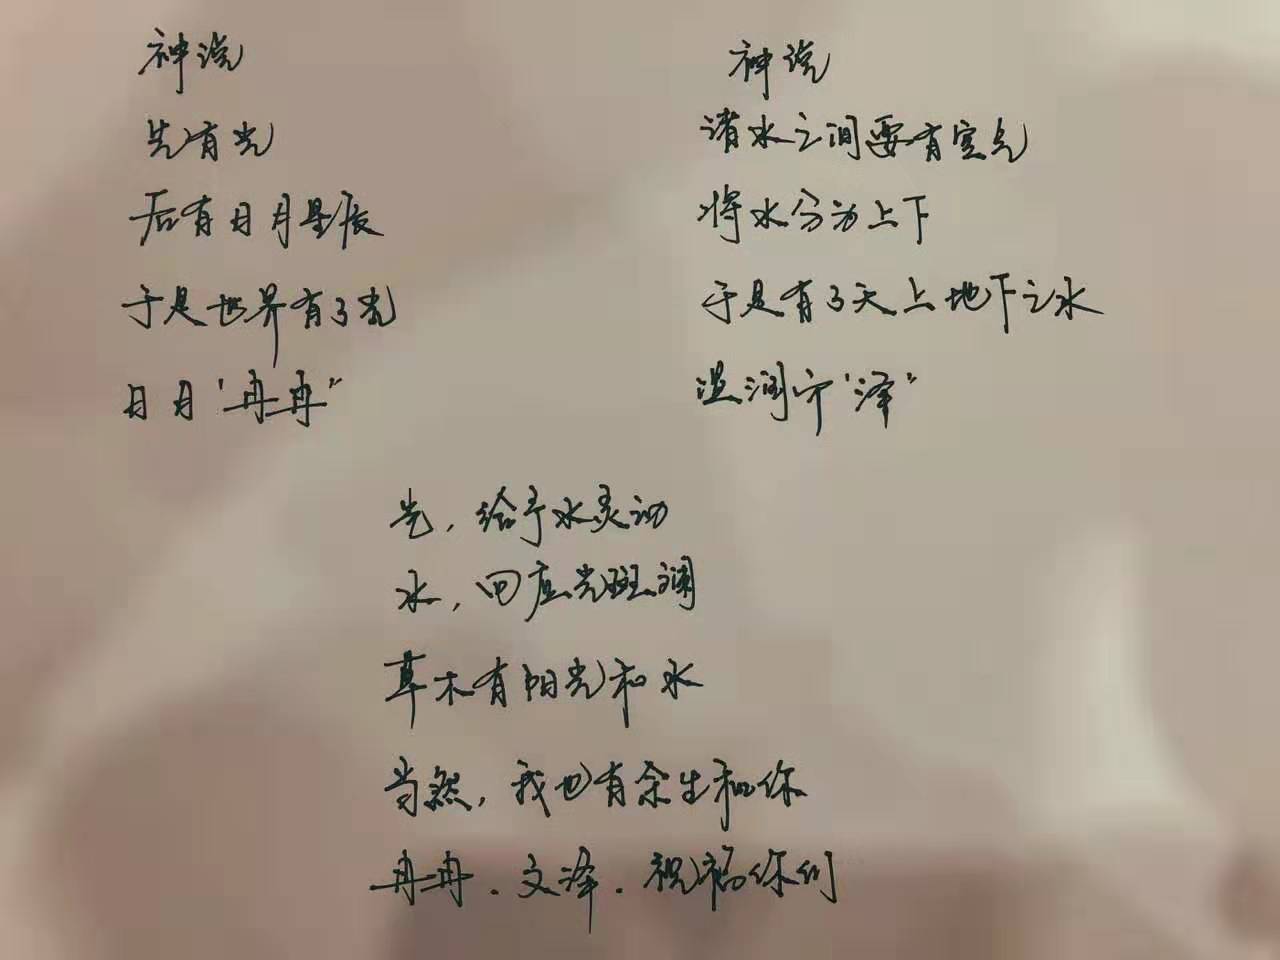 神说
先有光
后有日月星辰
于是世界有了光
日月“冉冉”
神说
诸水之间要有空气
将水分为上下
于是有了天上地下之水
温润宁“泽”
光，给予水灵动
水，回应光斑斓
草木有阳光和水
当然，我也有余生和你
冉冉．文泽．祝福你们